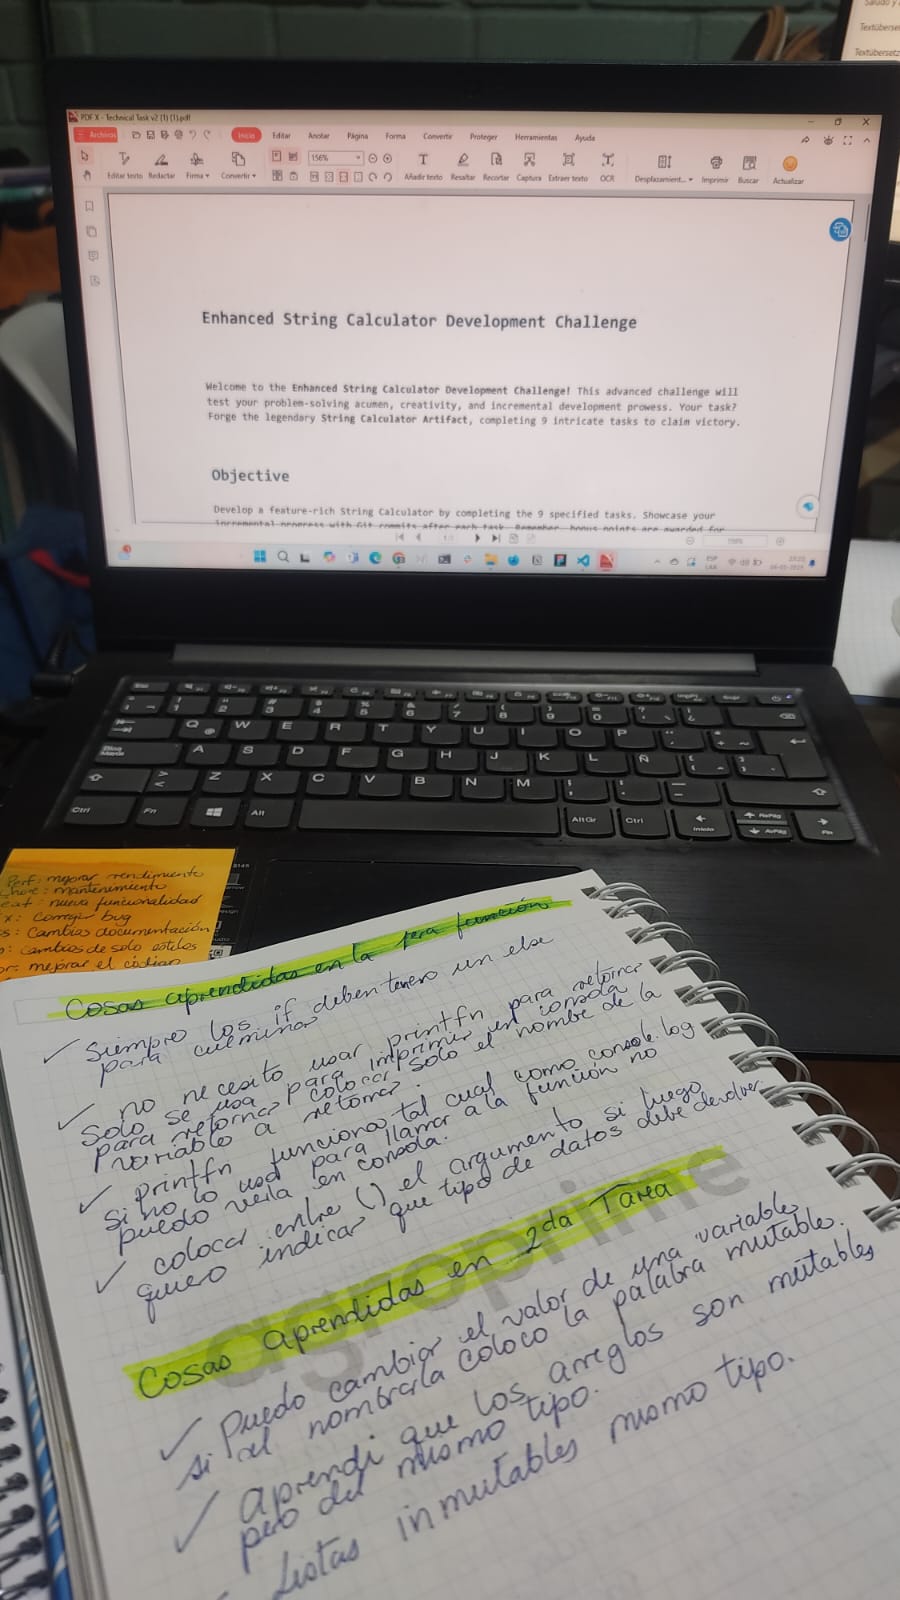 Saludo y
Textüberse
Textübersetz
PDF X - Technical Task v2 (1) (1).pdf
Archivos
Inicio
Editar
Anotar
Página
Forma
Convertir
Proteger
Herramientas
Ayuda
156%
Editar texto
Redactar
Firma
Convertir
Añadir texto
Resaltar
Recortar
Captura
Extraer texto
OCR
Desplazamient...
Imprimir
Buscar
Actualizar
Enhanced String Calculator Development Challenge
Welcome to the Enhanced String Calculator Development Challenge! This advanced challenge will
test your problem-solving acumen, creativity, and incremental development prowess. Your task?
Forge the legendary String Calculator Artifact, completing 9 intricate tasks to claim victory.
Objective
Develop a feature-rich String Calculator by completing the 9 specified tasks. Showcase your
incremental progress with Git commits after each task. Remember, bonus points are awarded for
ESP
Q W E R T Y U I O P
A S D F G H J K L Ñ
Z X C V B N M
Ctrl Fn Alt AltGr Ctrl Inicio RePág AvPág Fin
Perf: mejorar rendimiento
hore: mantenimiento
eat: nueva funcionalidad
x: corregir bug
s: cambios documentación
: cambios de solo estilos
or: mejorar el código
Cosas aprendidas en la 1era función
✓ Siempre los if deben tener un else
para culminar
✓ no necesito usar printfn para retornar
solo se usa para imprimir en consola
para retornar colocar solo el nombre de la
variable a retornar.
✓ printfn funciona tal cual como console.log
si no lo uso para llamar a la función no
puedo verla en consola.
✓ colocar entre () el argumento si luego
quiero indicar que tipo de datos debe devolver
Cosas aprendidas en 2da Tarea
agroprime
✓ Puedo cambiar el valor de una variable
si al nombrarla coloco la palabra mutable.
✓ aprendi que los arreglos son mutables
pero del mismo tipo.
Listas inmutables mismo tipo.